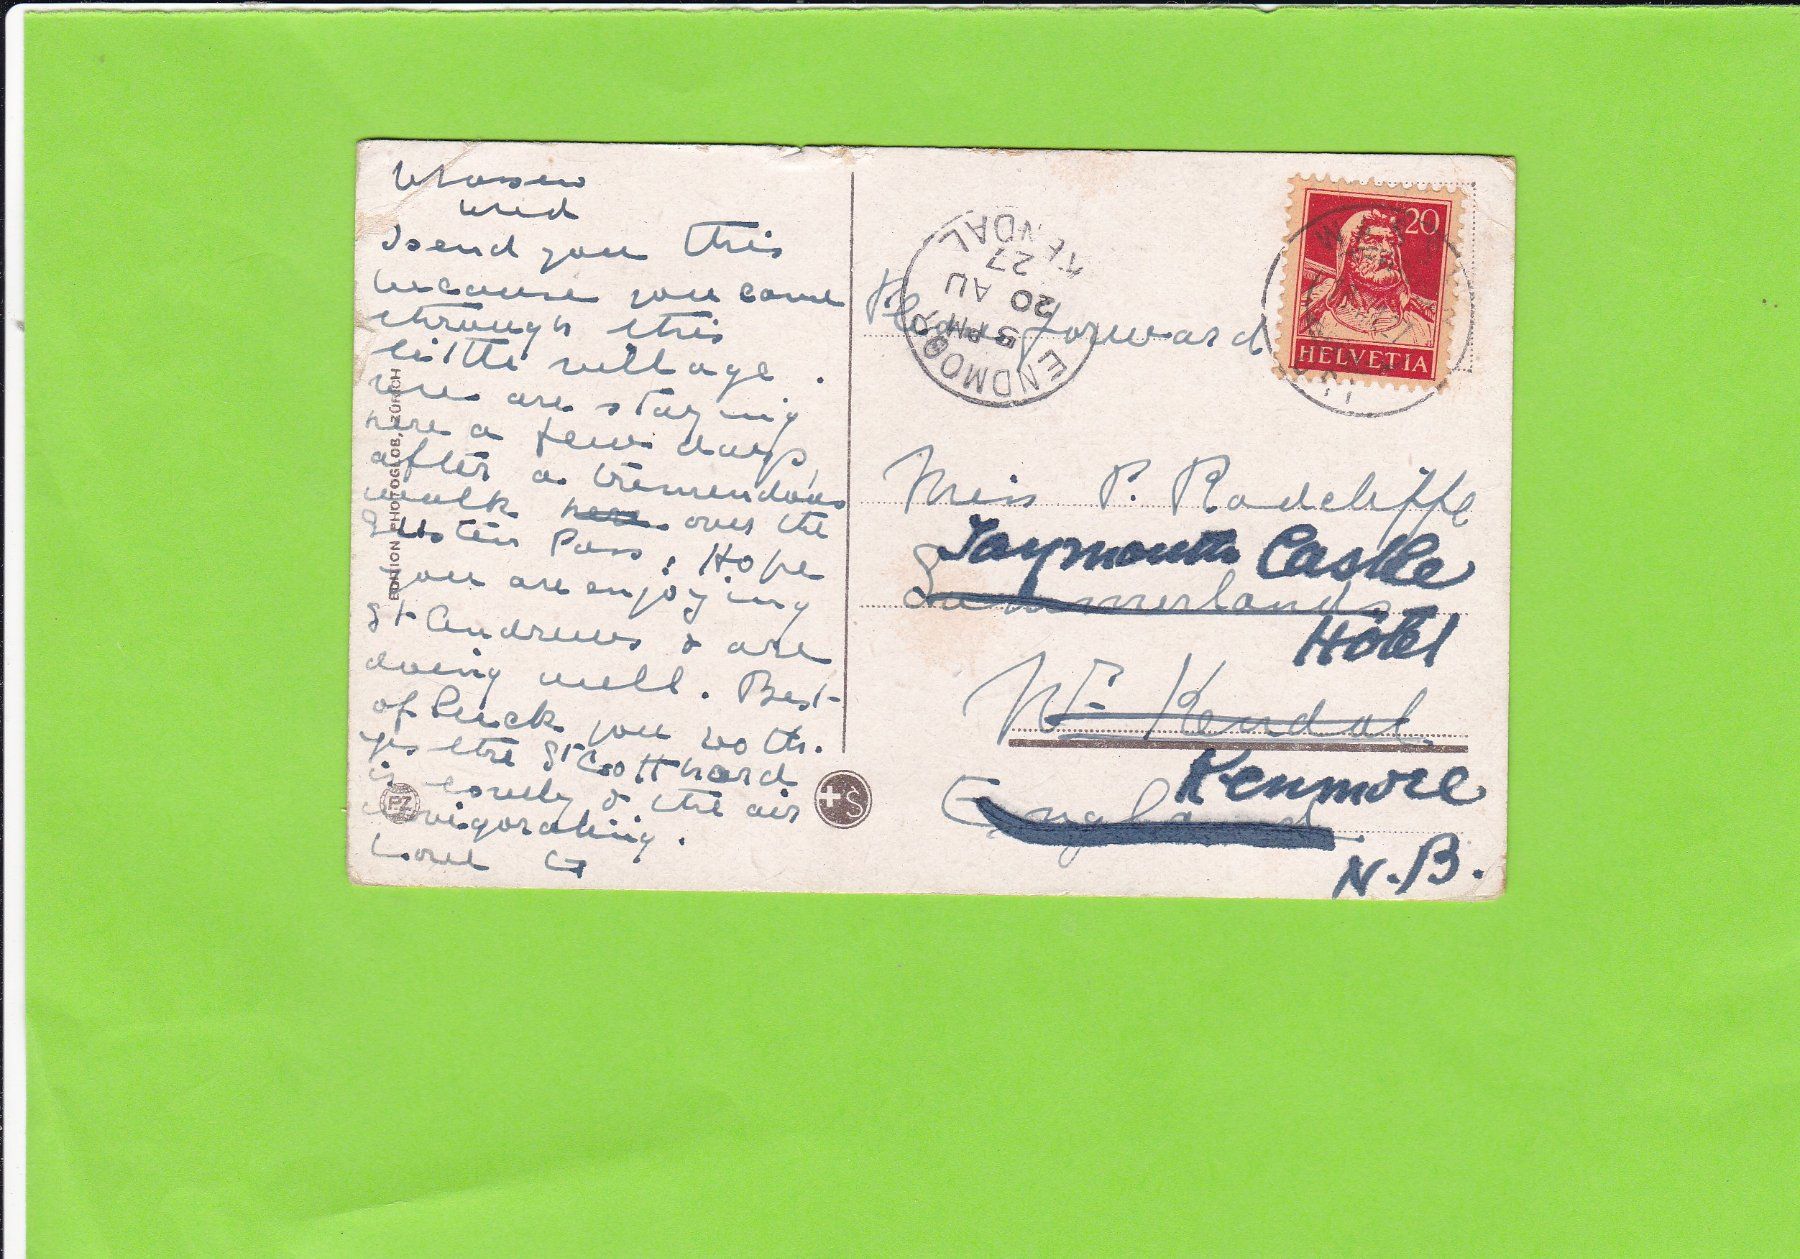 Wassen
Wed
I send you this
because you came
through this
little village.
We are staying
here a few days,
after a tremendous
walk here over the
Susten Pass. Hope
you are enjoying
St Andrews & are
doing well. Best
of luck you both.
Yes the St Gotthard
is lovely & the air
invigorating.
Love G
EDITION PHOTOGLOB, ZÜRICH
PZ
S
ENDMOOR
5 PM
20 AU
27
KENDAL
Pls forward
20
HELVETIA
Miss P. Radcliffe
Taymouth Castle
Summerlands
Hotel
Nr Kendal
Kenmore
England
N.B.